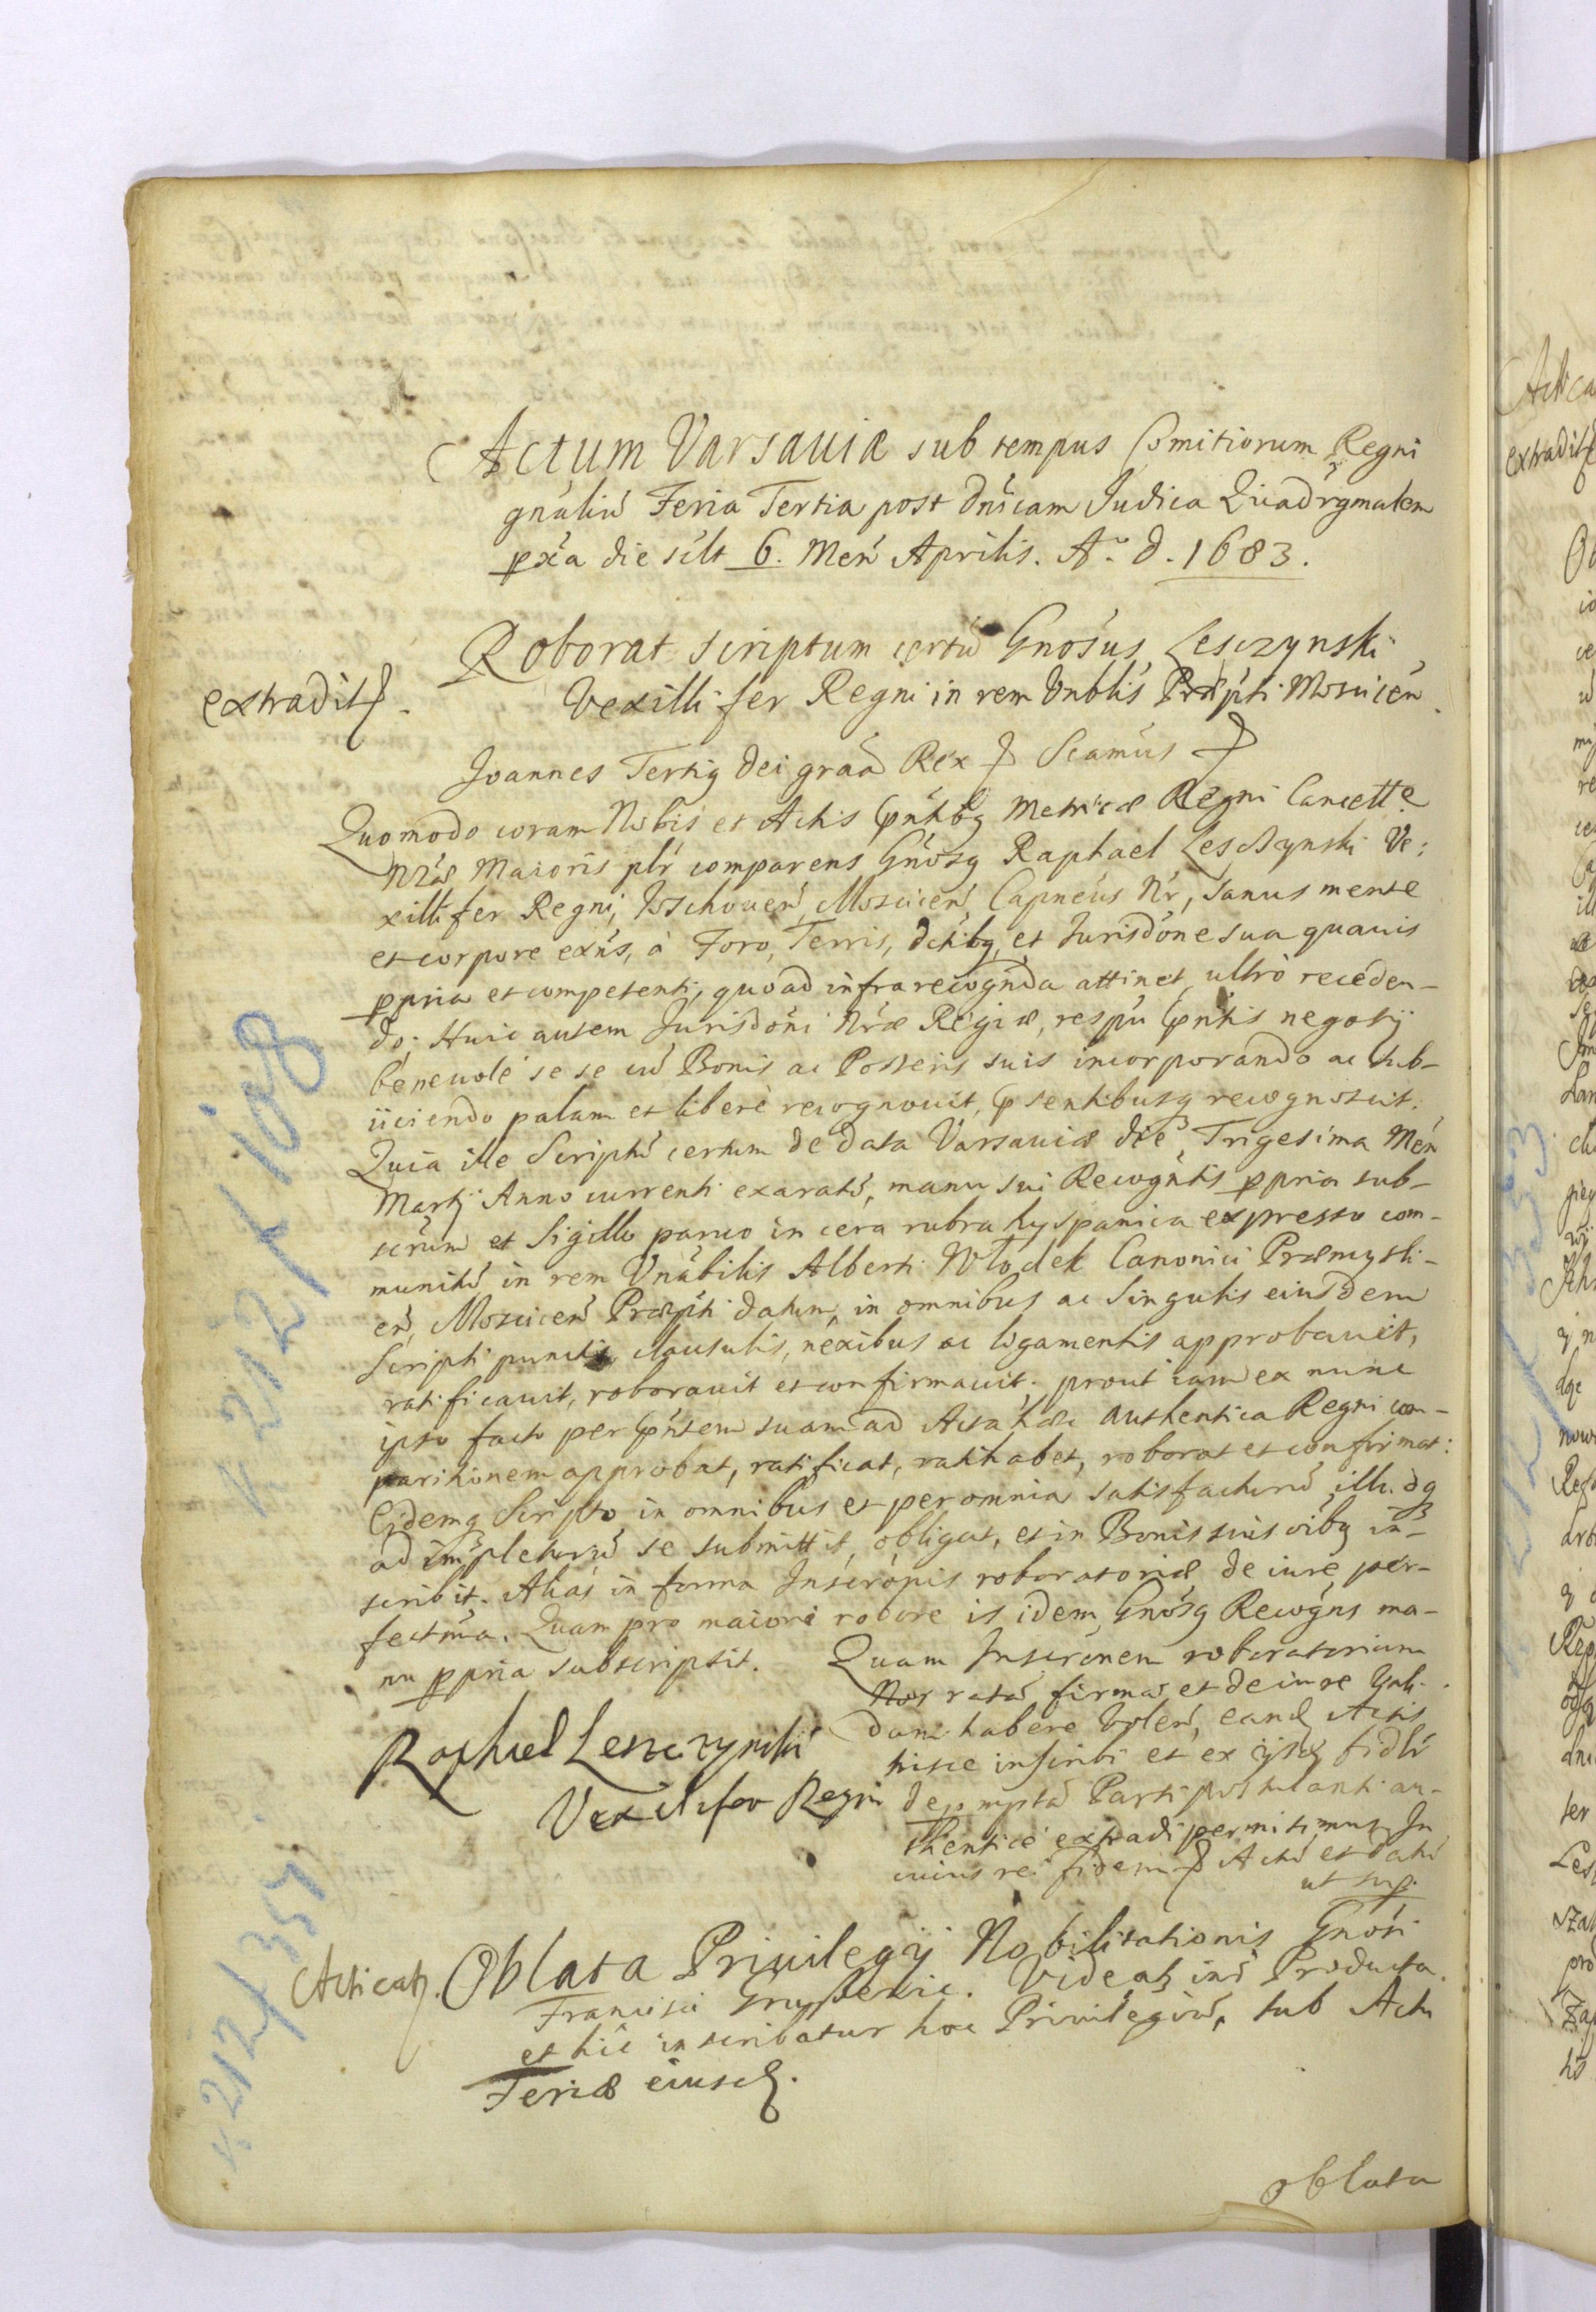 Actum Varsauiæ sub tempus Comitiorum Regni
gńaliu᷃ Feria Tertia post Dńicam Judica Quadrgmalem
pxa die silt 6. Men᷃ Aprilis. Aº. d. 1683.
Roborat scriptum certu᷃ Gnosus Lesczynski
Vexillifer Regni in rem Vnblis Præpti Moscicen᷃.
extradit
Joannes Tertig Dei graa᷃ Rex Scamus
Quomodo coram Nobis et Actis pntibg Metricæ Regni Cancellæ
Nræ Maioris plr comparens Gnosg Raphael Lesczynski Ve:
xillifer Regni, Wschouen᷃, Moscicen᷃ Capneus Nr, sanus mente
et corpore exns, à Foro, Terris, dctibg, et Jurisdone sua quauis
ppria et competenti, quoad infrarecognda attinet, ultrò receden-
do; Huic autem Jurisdoni Nræ Regiæ, respu pntis negotij
beneuolè sese cu᷃ Bonis ac Posteris suis incorporando ac sub-
iiciendo palam et liberè recognouit, psentibusg recognoscit.
Quia ille Scriptu᷃ certum de data Varsauiæ die Trigesima Men᷃
Martij Anno currenti exaratu᷃, manu sui Recogntis ppria sub-
scrum et Sigillo paruo in cera rubra hyspanica expresso com-
munitu᷃ in rem Vnabilis Alberti Włodek Canonici Præmysli-
en᷃, Moscicen᷃ Præpti datum, in omnibus ac Singulis eiusdem
Scripti punctis, clausulis, nexibus ac ligamentis approbauit,
ratificauit, roborauit et confirmauit, prout iam ex nunc
ipso facto per pntem suam ad Acta hæc authentica Regni com-
paritionem approbat, ratificat, ratihabet, roborat et confirmat:
Eidemg Scripto in omnibus et per omnia satisfacturu᷃, illudg
ad impleturu᷃ se submittit, obligat, et in Bonis suis oibg in-
scribit. Alias in forma Inscropis roboratoriæ de iure per-
fectma. Quam pro maiori robore is idem Gnosg Recogns ma-
nu ppria subscripsit.
Raphael Leszczynski
Vexilifer Regni
Quam Inscronem roboratoriam
Nos rata᷃ firma᷃ et de iure
dam habere volen᷃, eand Actis
hisce inscribi et ex ijsd fidlr
depompta᷃ Parti postulanti au-
thenticè extradi permisimus. In
cuius rei fidem Actu᷃ et datu᷃
ut sup.
Acticat. Oblata Priuilegij Nobilitationis Gnosi
Francisci . Videat int Producta.
et hic inscribatur hoc Priuilegiu᷃, sub Actu
Feriæ eiusd.
oblata
k 212 f 108
k. 212 f 351